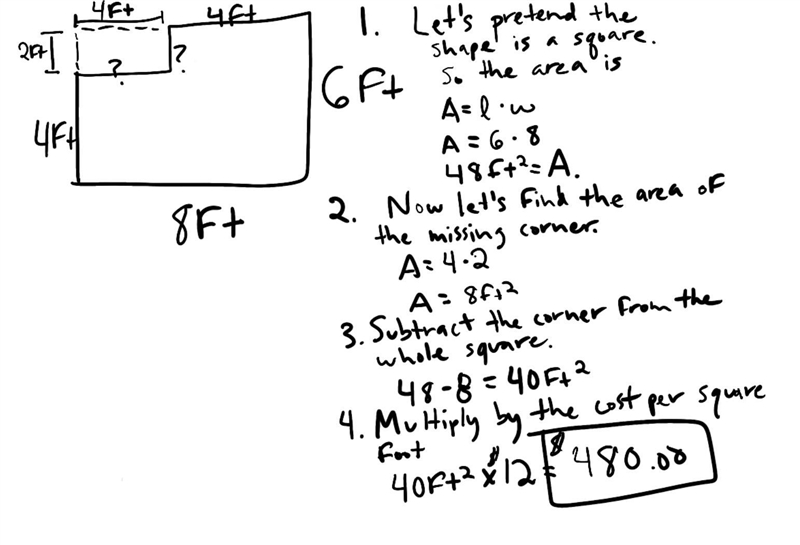 4Ft
4Ft
2Ft
?
?
4Ft
6Ft
8Ft
1. Let's pretend the
shape is a square.
So the area is
A = l · w
A = 6 · 8
48ft² = A.
2. Now let's find the area of
the missing corner.
A = 4 · 2
A = 8ft²
3. Subtract the corner from the
whole square.
48 - 8 = 40Ft²
4. Multiply by the cost per square
foot
40Ft² x $12 = $480.00